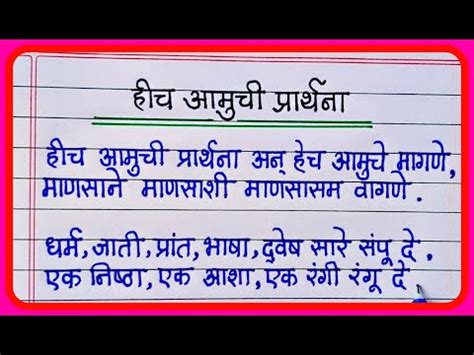 हीच आमुची प्रार्थना
हीच आमुची प्रार्थना अन् हेच आमुचे मागणे,
माणसाने माणसाशी माणसासम वागणे.
धर्म, जाती, प्रांत, भाषा, द्वेष सारे संपू दे.
एक निष्ठा, एक आशा, एक रंगी रंगू दे